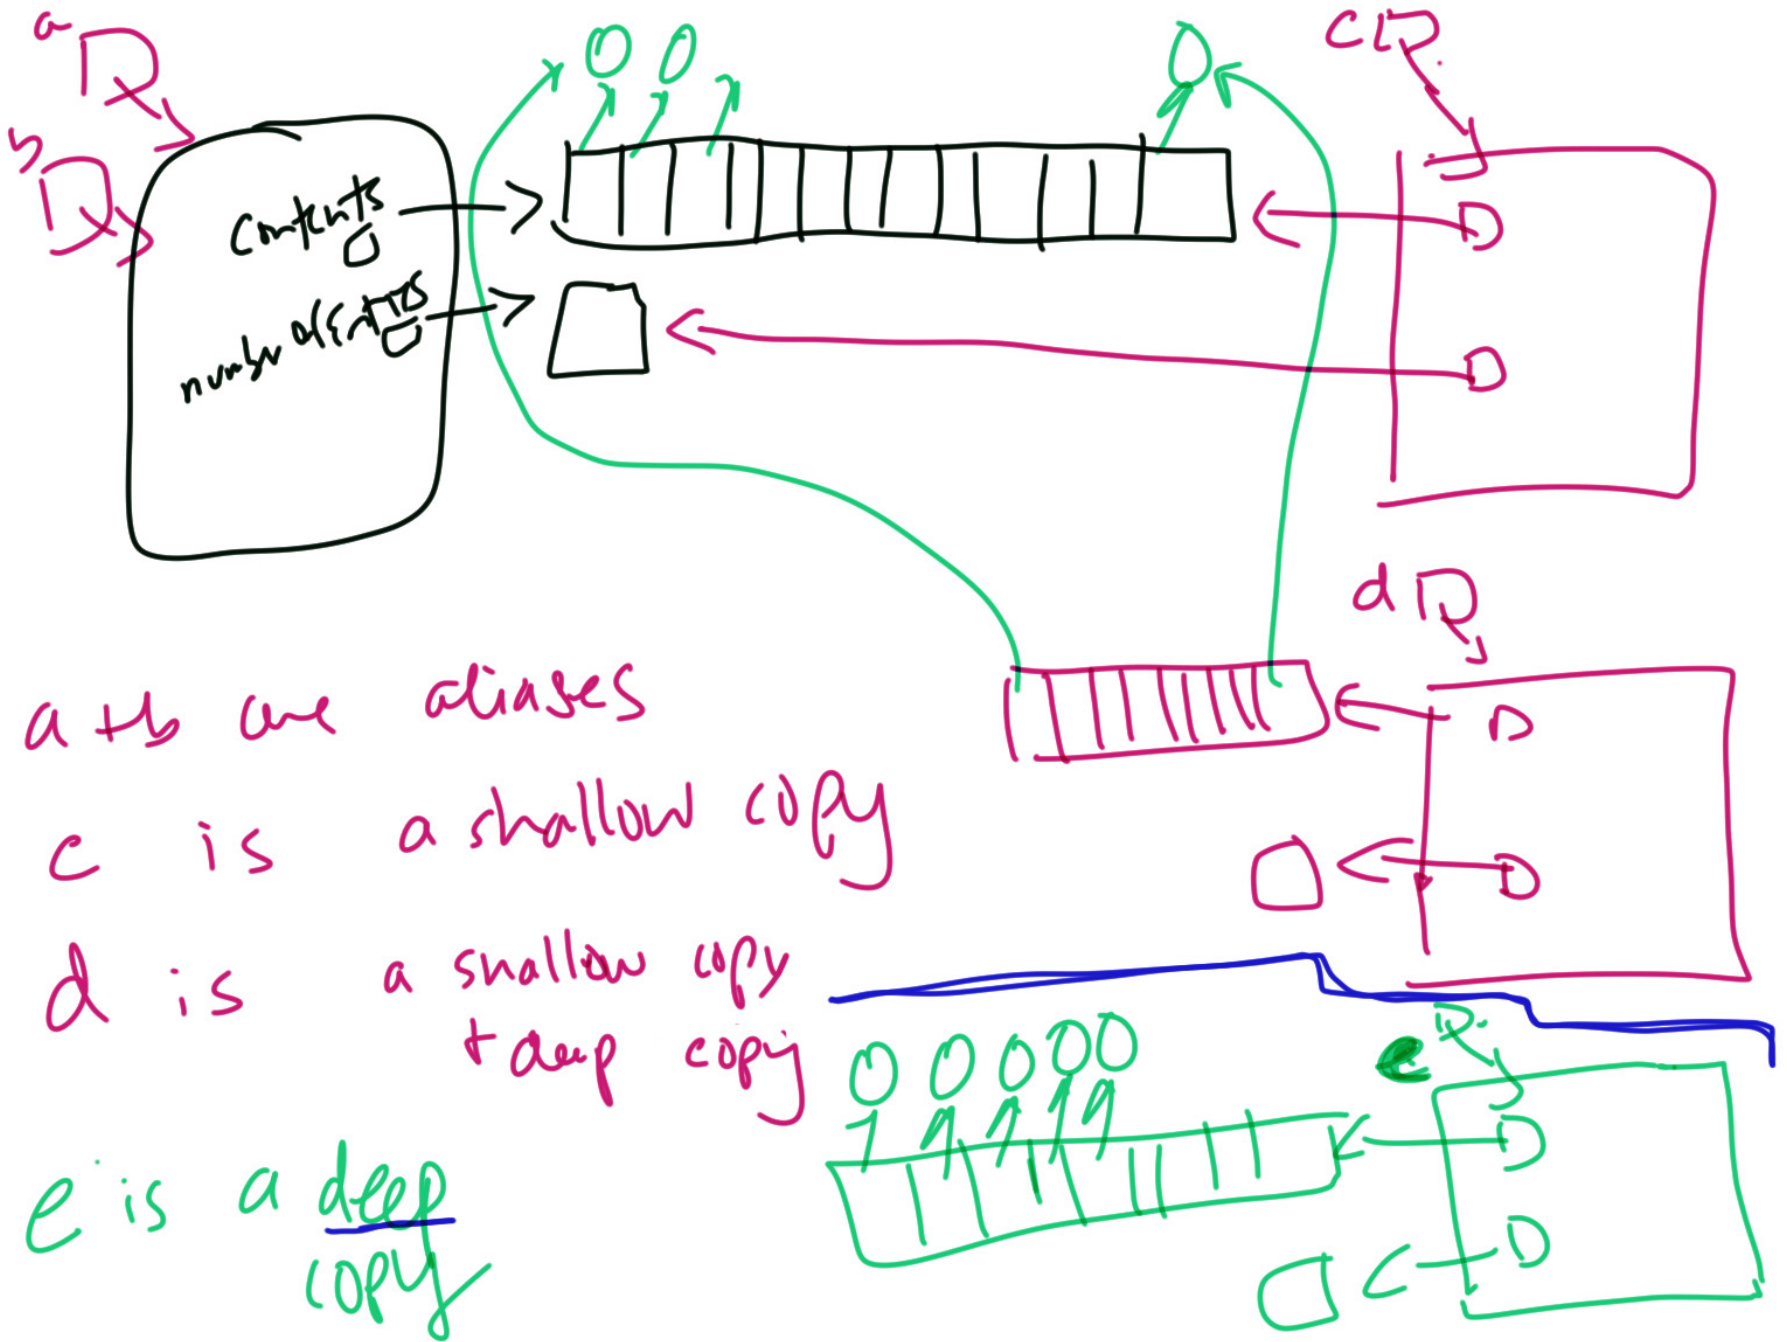 a
b
c
contents
number of entries
d
a + b are aliases
c is a shallow copy
d is a shallow copy
+ deep copy
e
e is a deep
copy